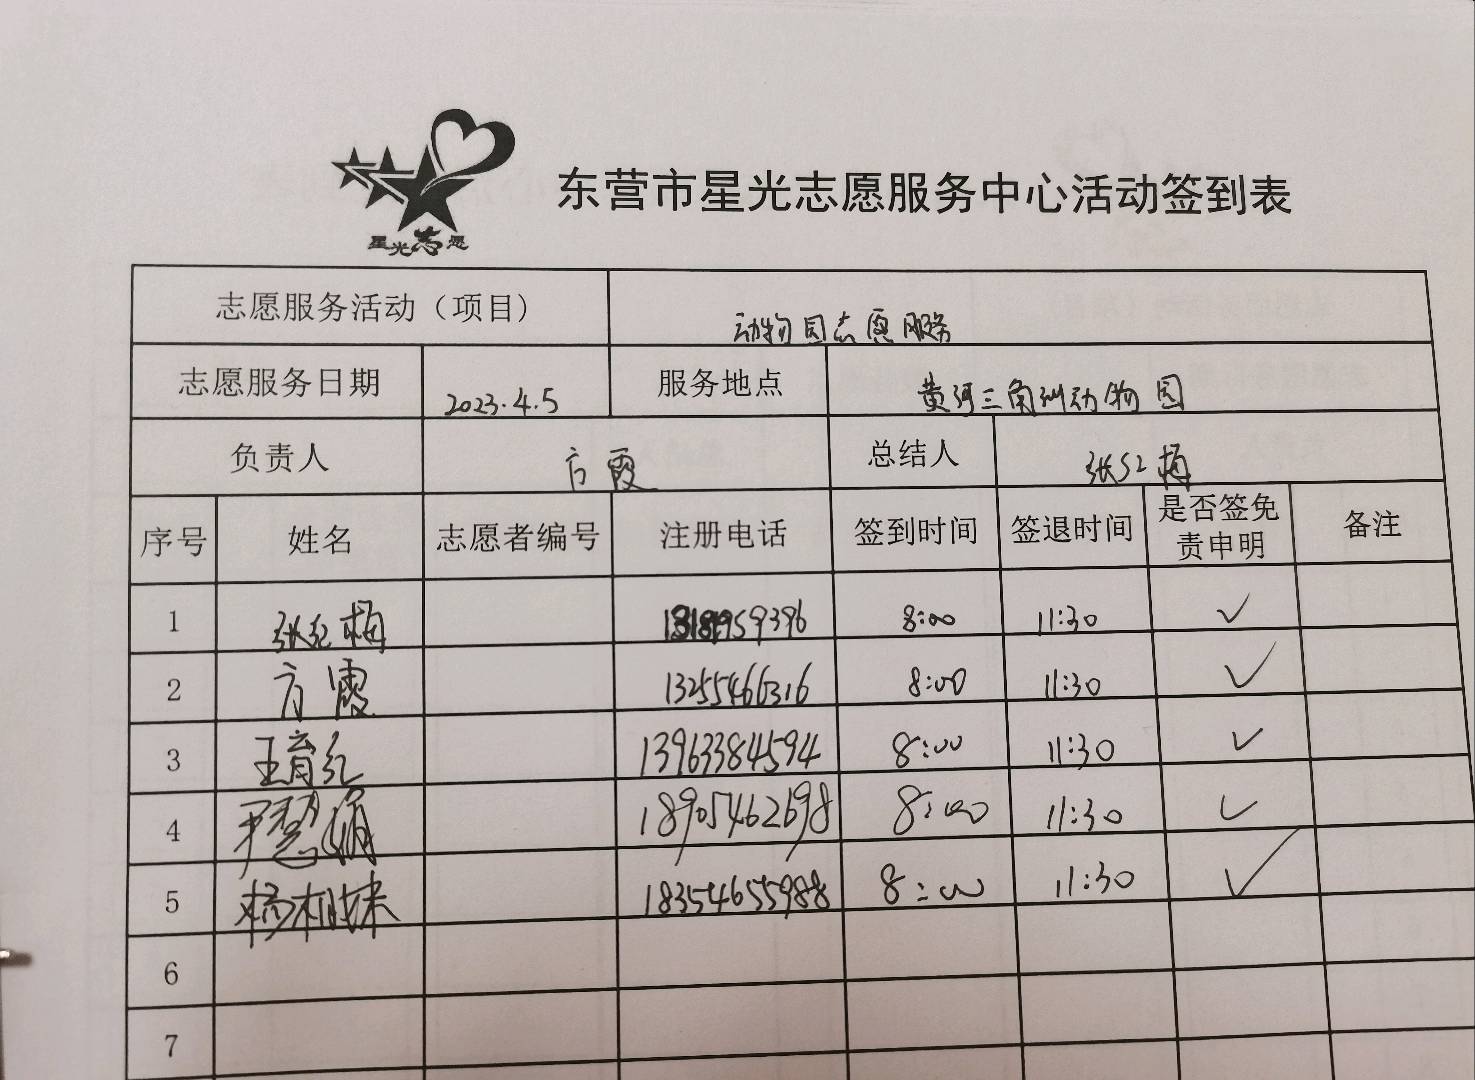 星光志愿
东营市星光志愿服务中心活动签到表
志愿服务活动（项目） 动物园志愿服务
志愿服务日期 2023.4.5 服务地点 黄河三角洲动物园
负责人 方霞 总结人 张红梅
序号 姓名 志愿者编号 注册电话 签到时间 签退时间 是否签免责申明 备注
1 张红梅 8:00 11:30 ✓
2 方霞 13255466316 8:00 11:30 ✓
3 王育红 13963384594 8:00 11:30 ✓
4 尹慧娟 18905462698 8:00 11:30 ✓
5 杨 18354655988 8:00 11:30 ✓
6
7